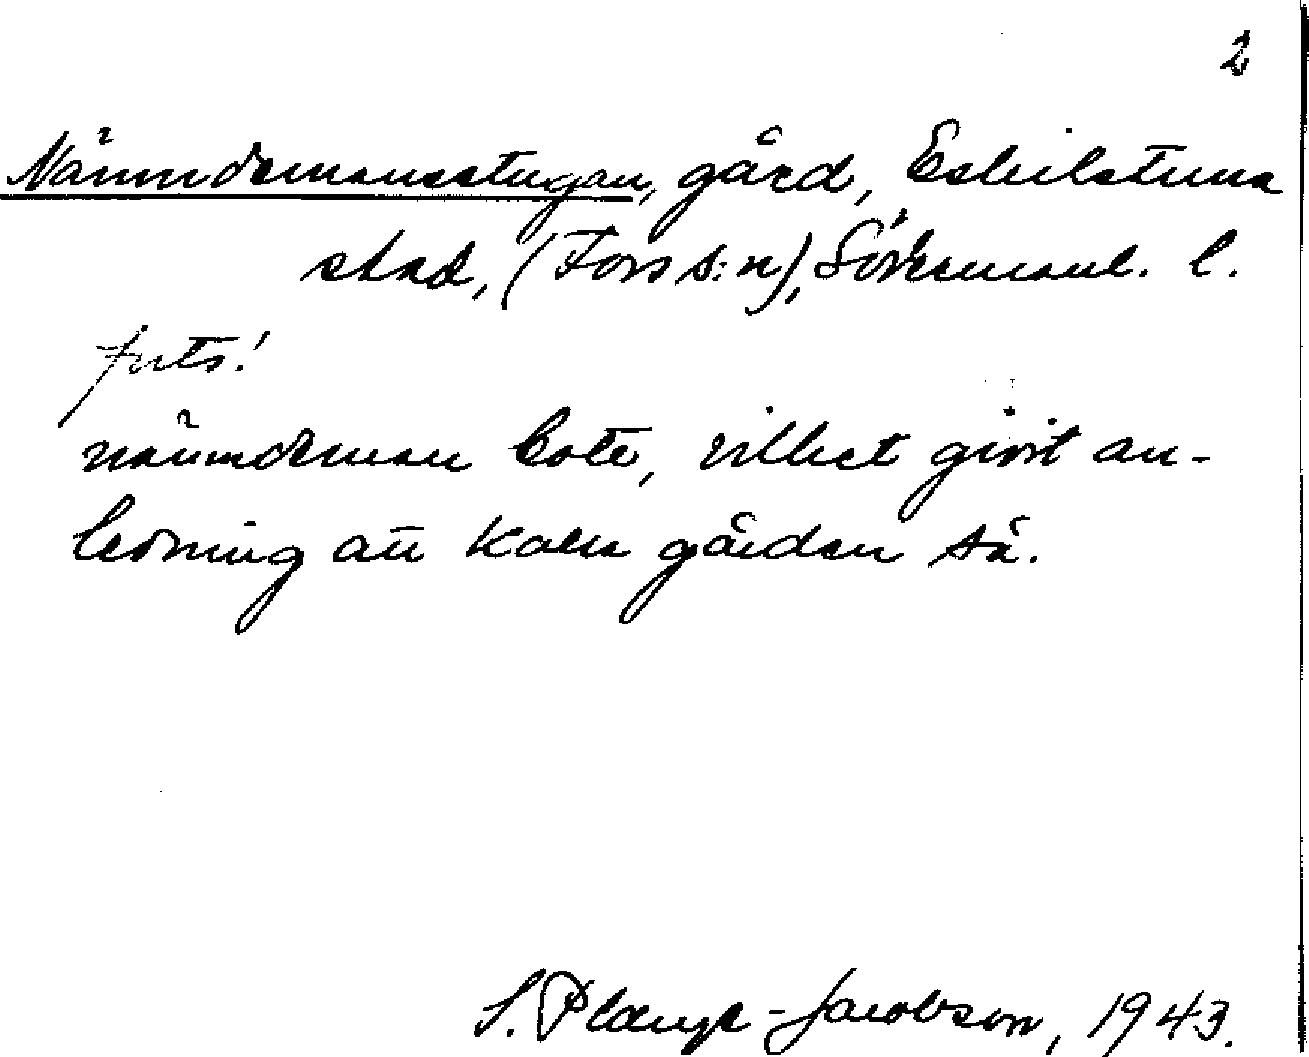 2
Nämndemansstugan, gård, Eskilstuna
stad, (Fors s:n), Södermanl. l.
forts!
nämndeman bott, vilket givit an-
ledning att kalla gården så.
S. Plænge-Jacobson, 1943.